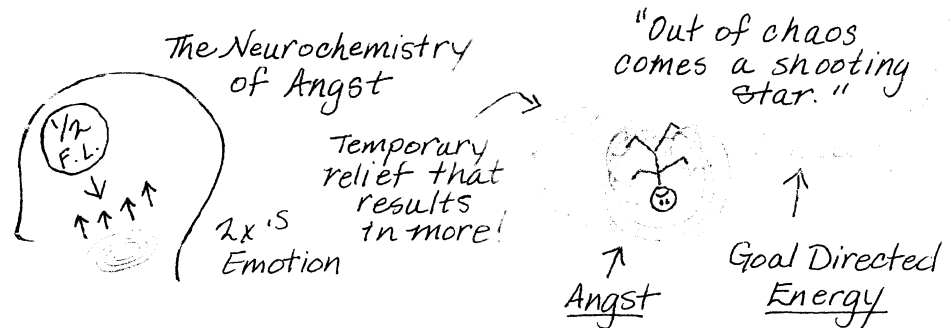 The Neurochemistry
of Angst
1/2
F.L.
2x's
Emotion
Temporary
relief that
results
in more!
"Out of chaos
comes a shooting
star."
Angst
Goal Directed
Energy